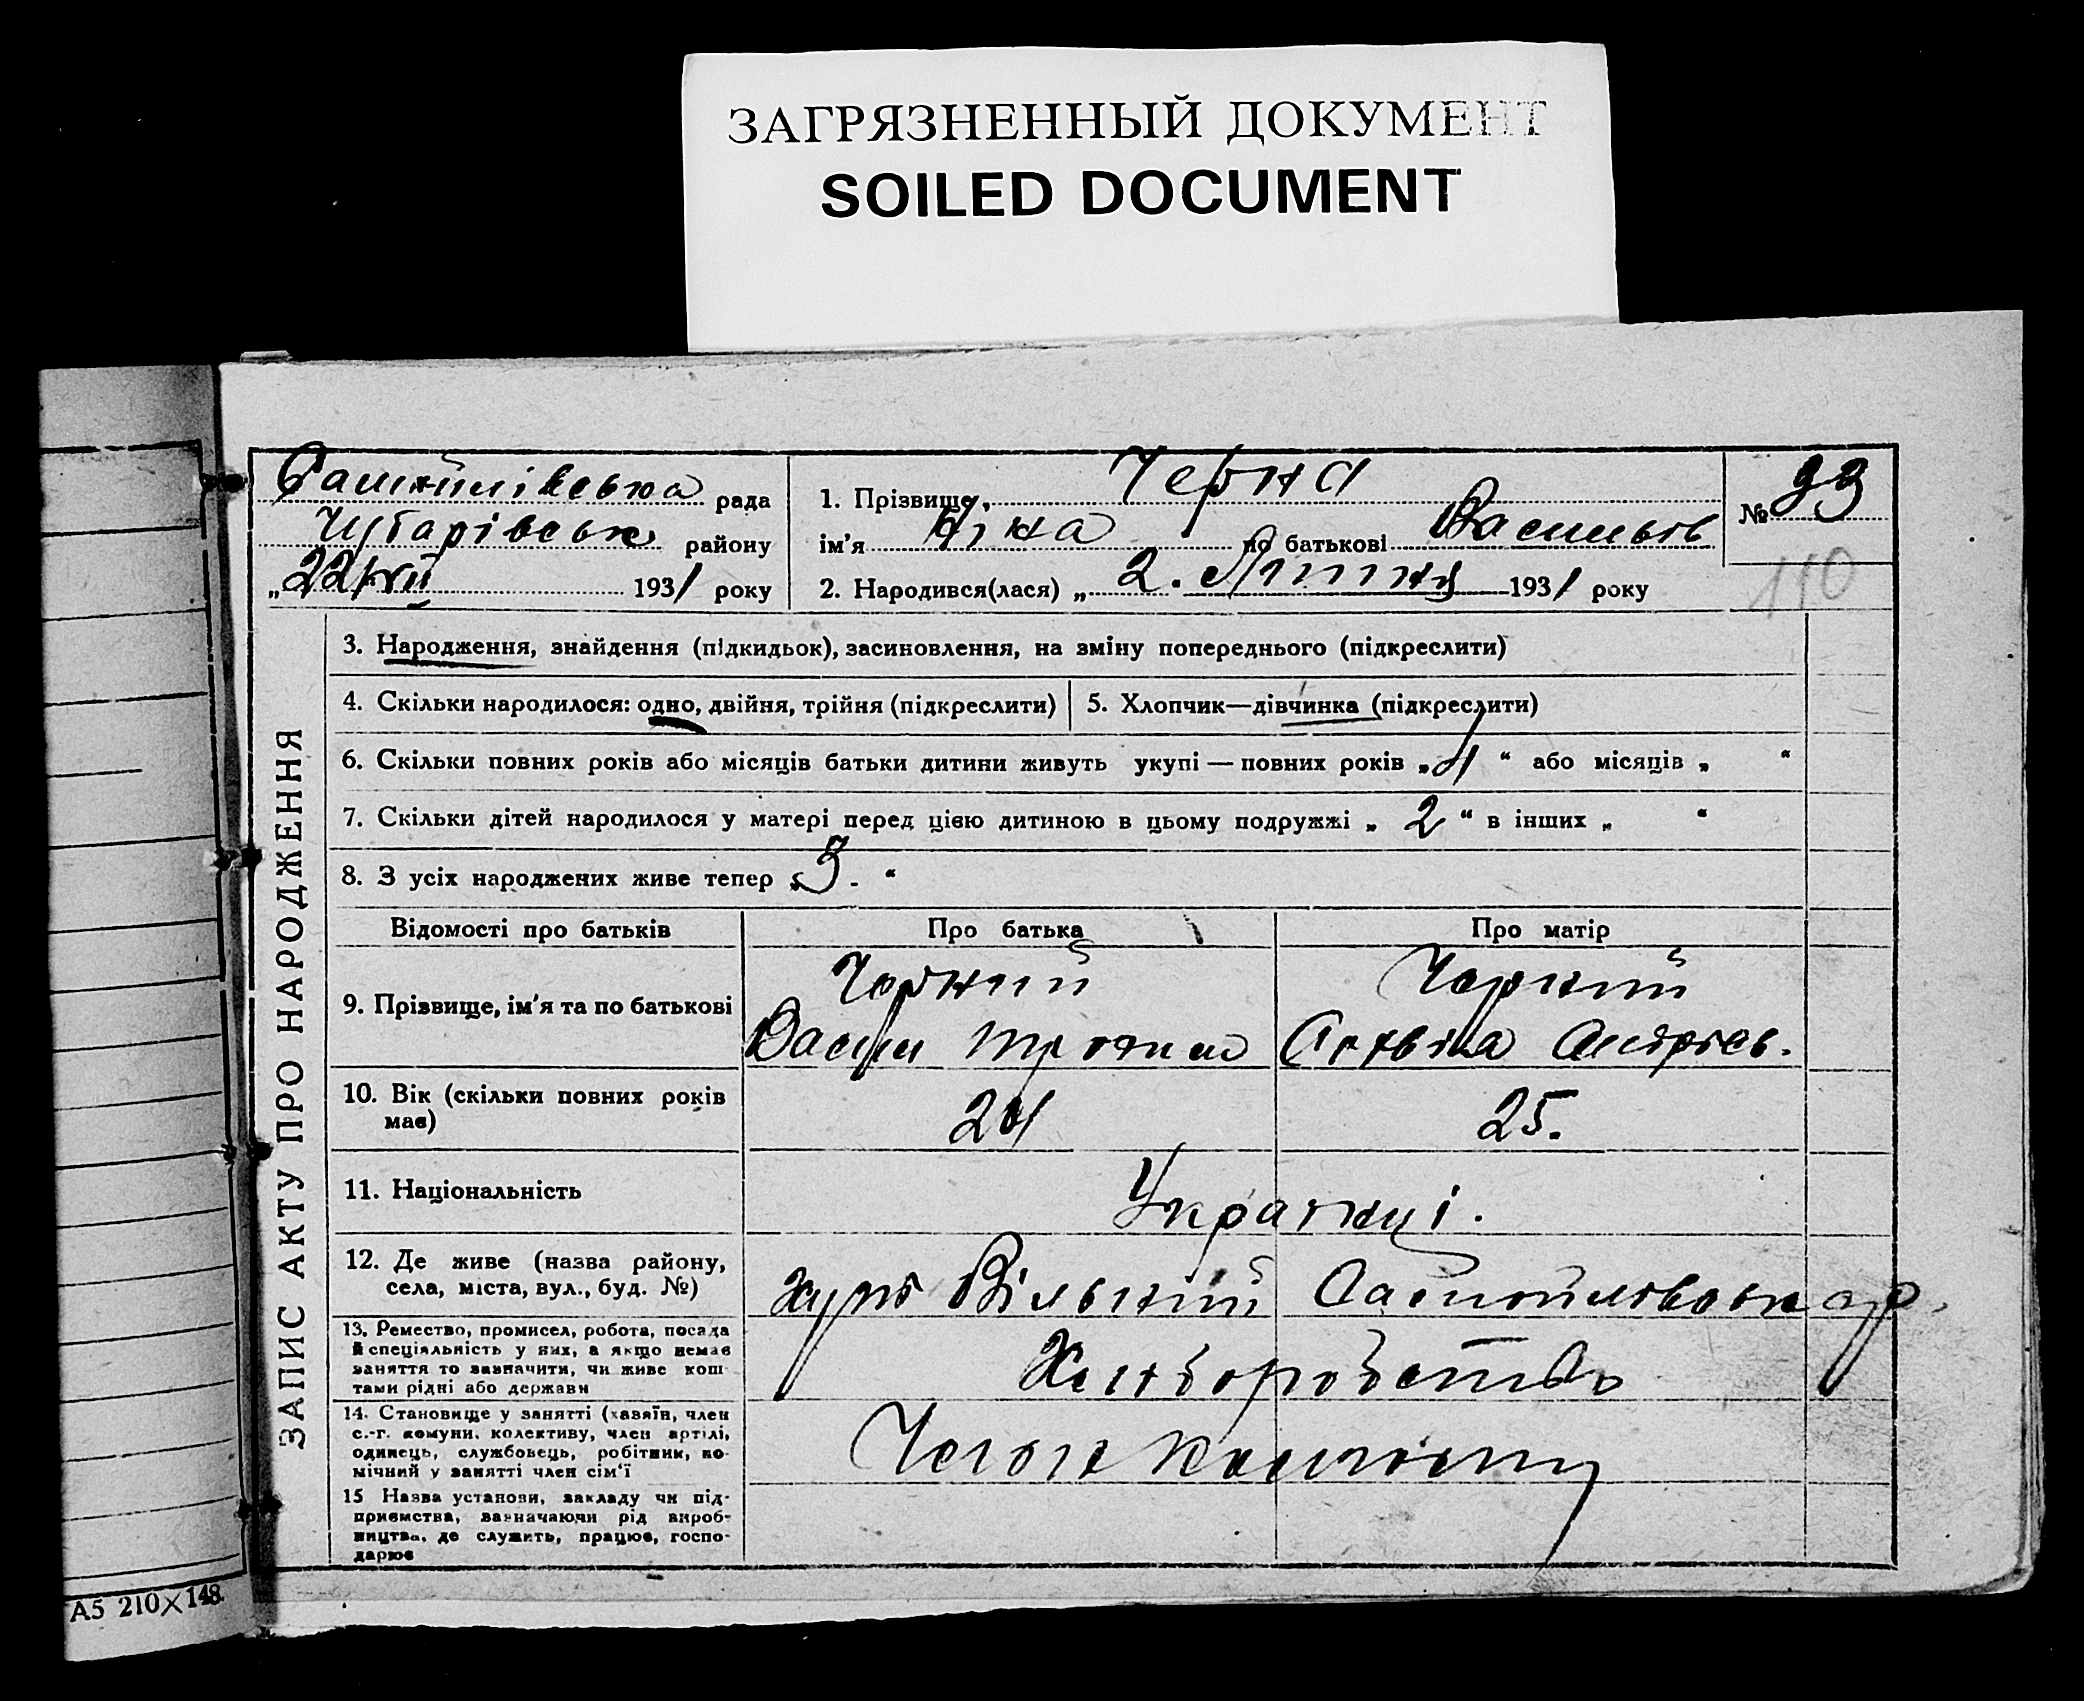 ЗАГРЯЗНЕННЫЙ ДОКУМЕНТ
SOILED DOCUMENT
рада
Чубарівськ району
„22/VII 1931 року
1. Прізвище, Черна
ім'я по батькові Васильов
2. Народився(лася) „2. Липня 1931 року
№ 93
110
ЗАПИС АКТУ ПРО НАРОДЖЕННЯ
3. Народження, знайдення (підкидьок), засиновлення, на зміну попереднього (підкреслити)
4. Скільки народилося: одно, двійня, трійня (підкреслити)
5. Хлопчик—дівчинка (підкреслити)
6. Скільки повних років або місяців батьки дитини живуть укупі — повних років „ “ або місяців „ “
7. Скільки дітей народилося у матері перед цією дитиною в цьому подружжі „ 2 “ в інших „ “
8. З усіх народжених живе тепер „3. “
Відомості про батьків
Про батька
Про матір
9. Прізвище, ім'я та по батькові
Чорний
Чорний
10. Вік (скільки повних років
має)
25.
11. Національність
Українці.
12. Де живе (назва району,
села, міста, вул., буд. №)
хутір Вільний
13. Ремество, промисел, робота, посада
й спеціяльність у них, а якщо немає
заняття то зазначити, чи живе кош-
тами рідні або держави
Хліборобство
14. Становище у занятті (хазяїн, член
с.-г. комуни, колективу, член артілі,
одинець, службовець, робітник, по-
мічний у занятті член сім'ї
Член
15 Назва установи, закладу чи під-
приємства, зазначаючи рід вироб-
ництва, де служить, працює, госпо-
дарює
А5 210×148.